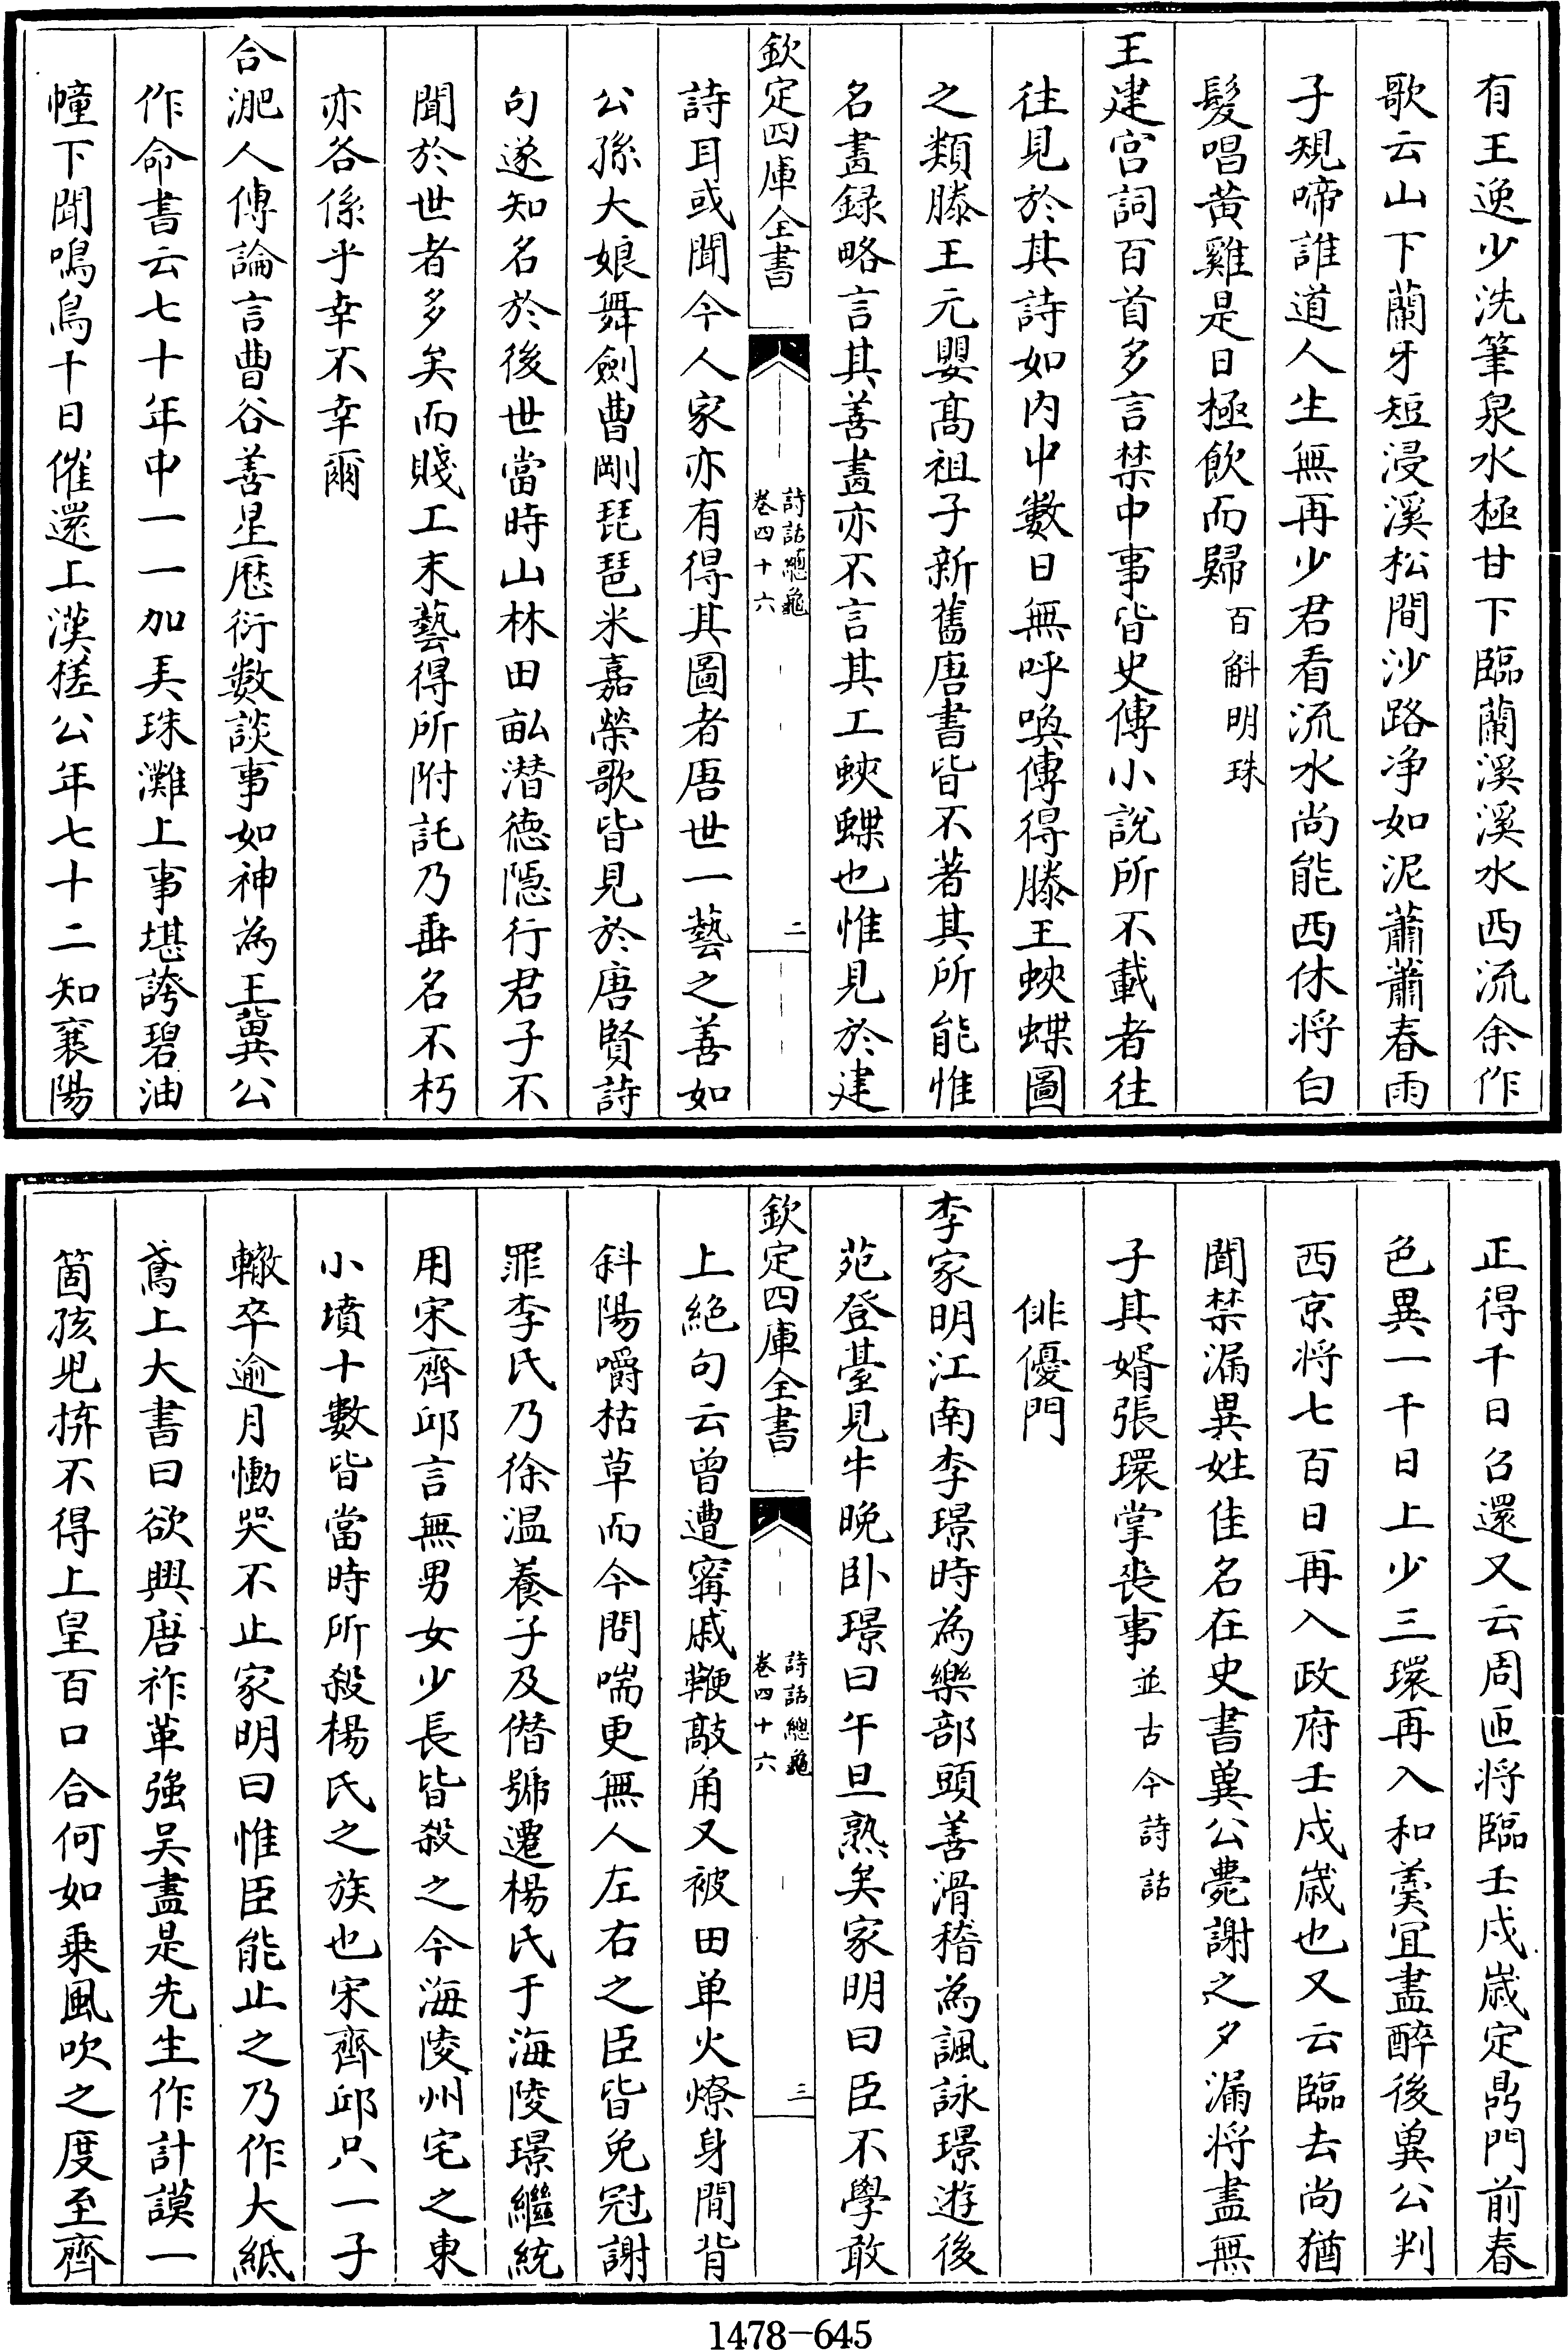 有王逸少洗筆泉水極甘下臨蘭溪溪水西流余作
歌云山下蘭牙短浸溪松間沙路净如泥蕭蕭春雨
子規啼誰道人生無再少君看流水尚能西休将白
髮唱黄雞是日極飲而歸百斛明珠
王建宫詞百首多言禁中事皆史傳小說所不載者往
往見於其詩如内中數日無呼喚傳得滕王蛺蝶圖
之類滕王元嬰髙祖子新舊唐書皆不著其所能惟
名畫録略言其善畫亦不言其工蛺蝶也惟見於建
欽定四庫全書
詩話總龜
卷四十六
二
詩耳或聞今人家亦有得其圖者唐世一藝之善如
公孫大娘舞劍曹剛琵琶米嘉榮歌皆見於唐賢詩
句遂知名於後世當時山林田畝潜徳隠行君子不
聞於世者多矣而賤工末藝得所附託乃垂名不朽
亦各係乎幸不幸爾
合淝人傅論言曹谷善星厯衍數談事如神為王冀公
作命書云七十年中一一加天珠灘上事堪誇碧油
幢下聞鳴鳥十日催還上漢槎公年七十二知襄陽
正得千日召還又云周匝将臨壬戌嵗定鼎門前春
色異一千日上少三環再入和羮宜盡醉後冀公判
西京将七百日再入政府壬戌嵗也又云臨去尚猶
聞禁漏異姓佳名在史書冀公薨謝之夕漏将盡無
子其婿張環掌喪事並古今詩話
俳優門
李家明江南李璟時為樂部頭善滑稽為諷詠璟遊後
苑登臺見牛晚卧璟曰午旦熟矣家明曰臣不學敢
欽定四庫全書
詩話總龜
卷四十六
三
上絶句云曾遭甯戚鞭敲角又被田单火燎身閒背
斜陽嚼枯草而今問喘更無人左右之臣皆免冠謝
罪李氏乃徐温養子及僭號遷楊氏于海陵璟繼統
用宋齊邱言無男女少長皆殺之今海陵州宅之東
小墳十數皆當時所殺楊氏之族也宋齊邱只一子
轍卒逾月慟哭不止家明曰惟臣能止之乃作大紙
鳶上大書曰欲興唐祚革強吴盡是先生作計謨一
箇孩兒拚不得上皇百口合何如乗風吹之度至齊
1478-645